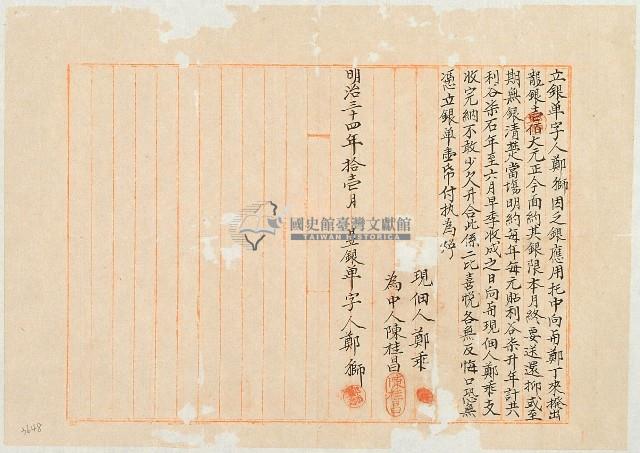 立銀单字人鄭獅因乏銀應用托中向而鄭丁來撥出
龍銀壹佰大元正今面約其銀限本月終要送還抑或至
期無銀清楚當塲明約每年每元貼利谷柒升年計共
利谷柒石年至六月早季收成之日向而現佃人鄭乖支
收完納不敢少欠升合此係二比喜悦各無反悔口恐無
憑立銀单壹帋付执為炤
現佃人鄭乖
為中人陳桂昌
陳桂昌
明治三十四年拾壹月 立銀单字人鄭獅
國史館臺灣文獻館
TAIWAN HISTORICA
3648